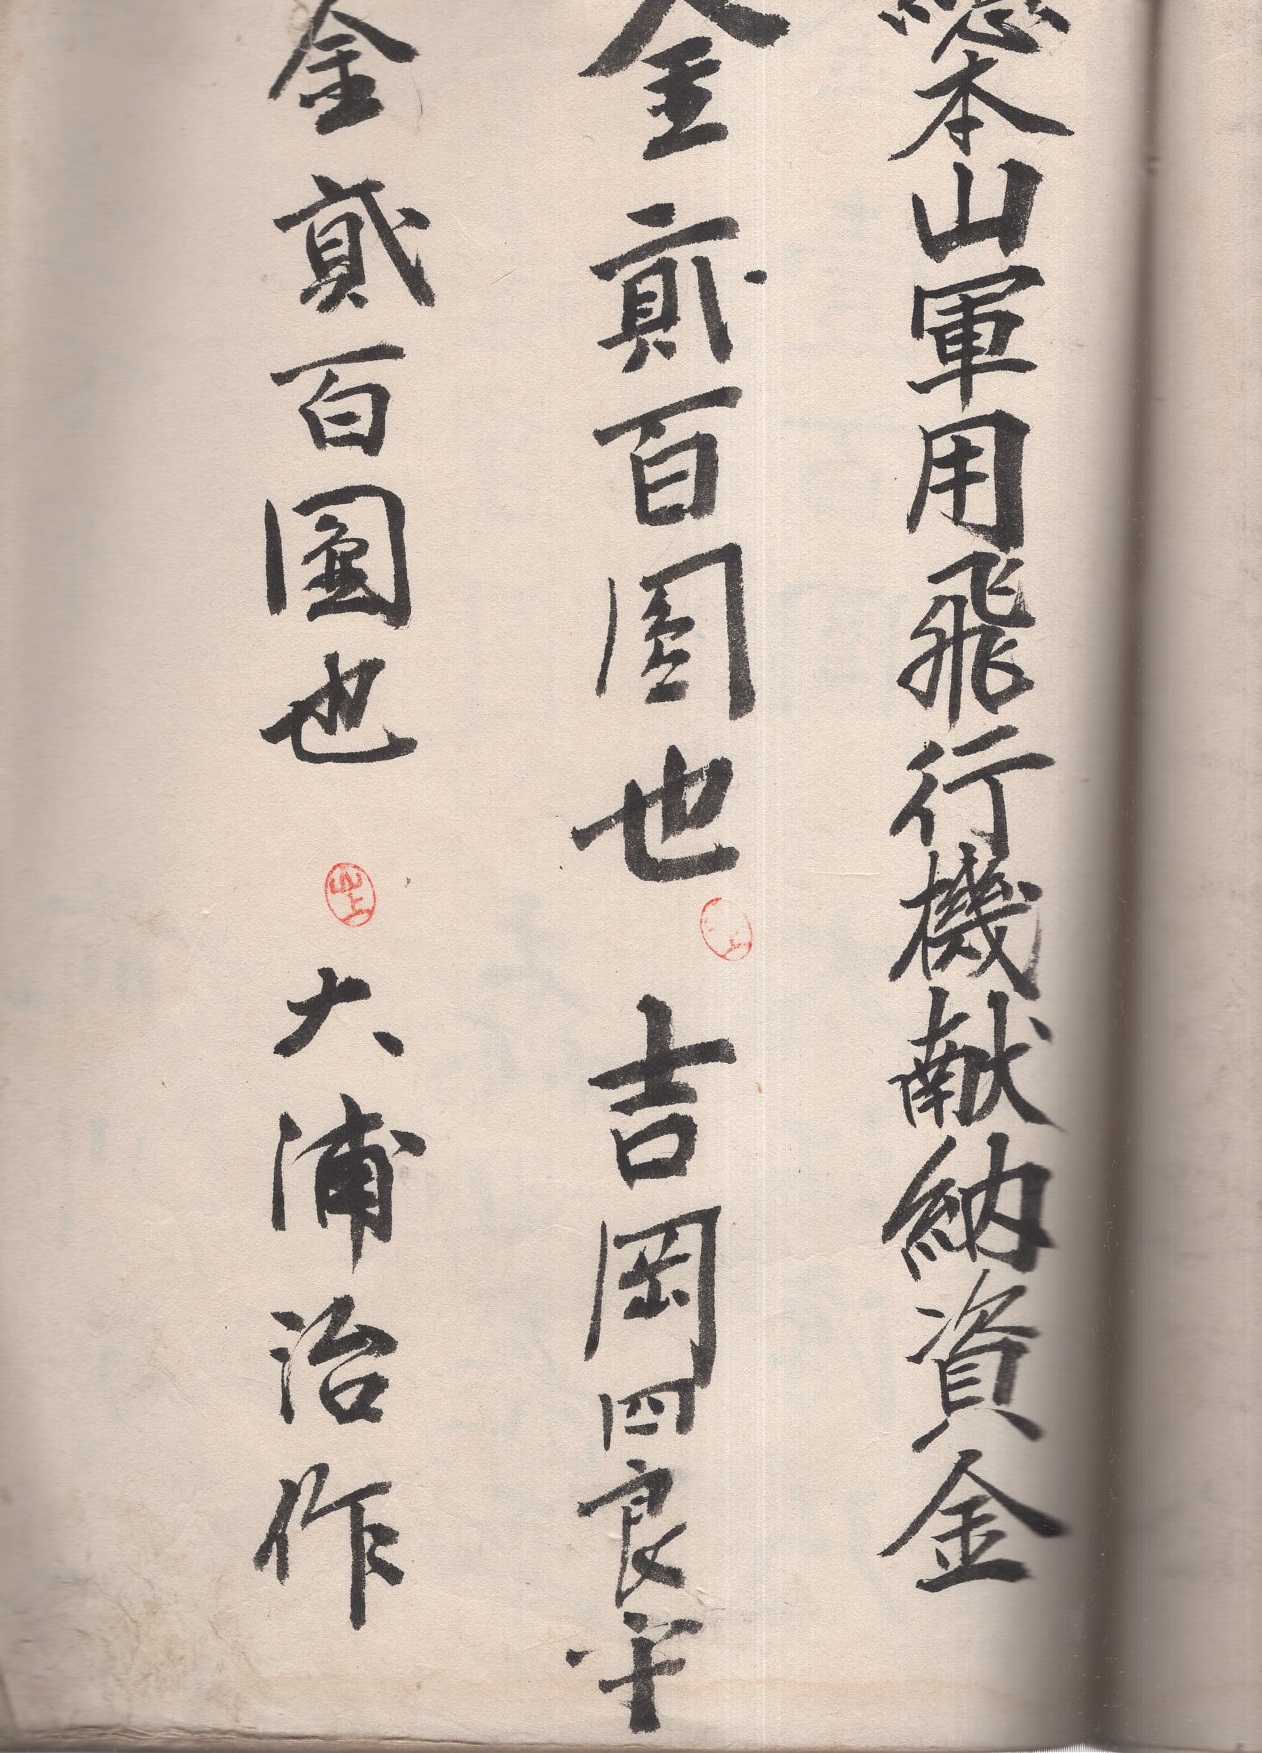 總本山軍用飛行機献納資金
金貳百圓也 吉岡四良平
金貳百圓也 大浦治作